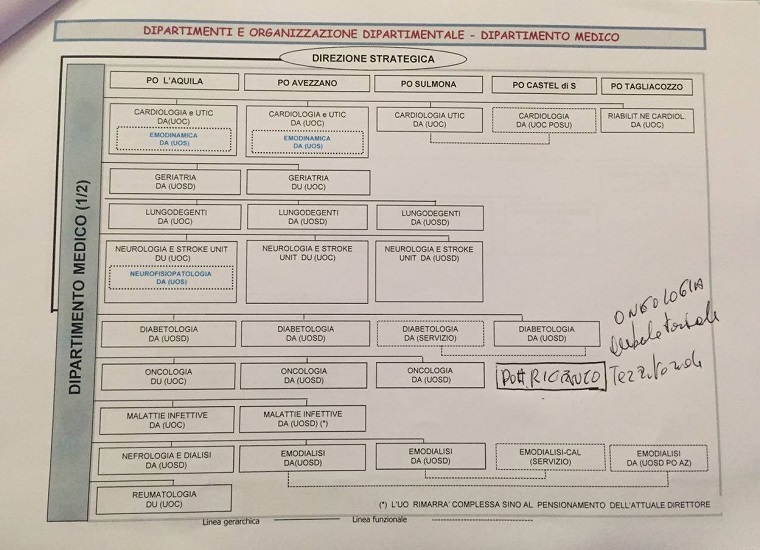 DIPARTIMENTI E ORGANIZZAZIONE DIPARTIMENTALE - DIPARTIMENTO MEDICO
DIREZIONE STRATEGICA
DIPARTIMENTO MEDICO (1/2)
PO L'AQUILA
PO AVEZZANO
PO SULMONA
PO CASTEL di S
PO TAGLIACOZZO
CARDIOLOGIA e UTIC
DA(UOC)
EMODINAMICA
DA (UOS)
CARDIOLOGIA e UTIC
DA(UOC)
EMODINAMICA
DA (UOS)
CARDIOLOGIA UTIC
DA (UOC)
CARDIOLOGIA
DA (UOC POSU)
RIABILIT.NE CARDIOL.
DA (UOC)
GERIATRIA
DA (UOSD)
GERIATRIA
DU (UOC)
LUNGODEGENTI
DA (UOC)
LUNGODEGENTI
DA (UOSD)
LUNGODEGENTI
DA (UOSD)
NEUROLOGIA E STROKE UNIT
DU (UOC)
NEUROFISIOPATOLOGIA
DA (UOS)
NEUROLOGIA E STROKE
UNIT DU (UOC)
NEUROLOGIA E STROKE
UNIT DA (UOSD)
DIABETOLOGIA
DA (UOSD)
DIABETOLOGIA
DA (UOSD)
DIABETOLOGIA
DA (SERVIZIO)
DIABETOLOGIA
DA (UOSD)
ONCOLOGIA
Territoriale
ONCOLOGIA
DU (UOC)
ONCOLOGIA
DA (UOSD)
ONCOLOGIA
DA (UOSD)
MALATTIE INFETTIVE
DA (UOC)
MALATTIE INFETTIVE
DA (UOSD) (*)
NEFROLOGIA E DIALISI
DA (UOSD)
EMODIALISI
DA(UOSD)
EMODIALISI
DA (UOSD)
EMODIALISI-CAL
(SERVIZIO)
EMODIALISI
DA (UOSD PO AZ)
REUMATOLOGIA
DU (UOC)
(*) L'UO RIMARRA' COMPLESSA SINO AL PENSIONAMENTO DELL'ATTUALE DIRETTORE
Linea gerarchica
Linea funzionale